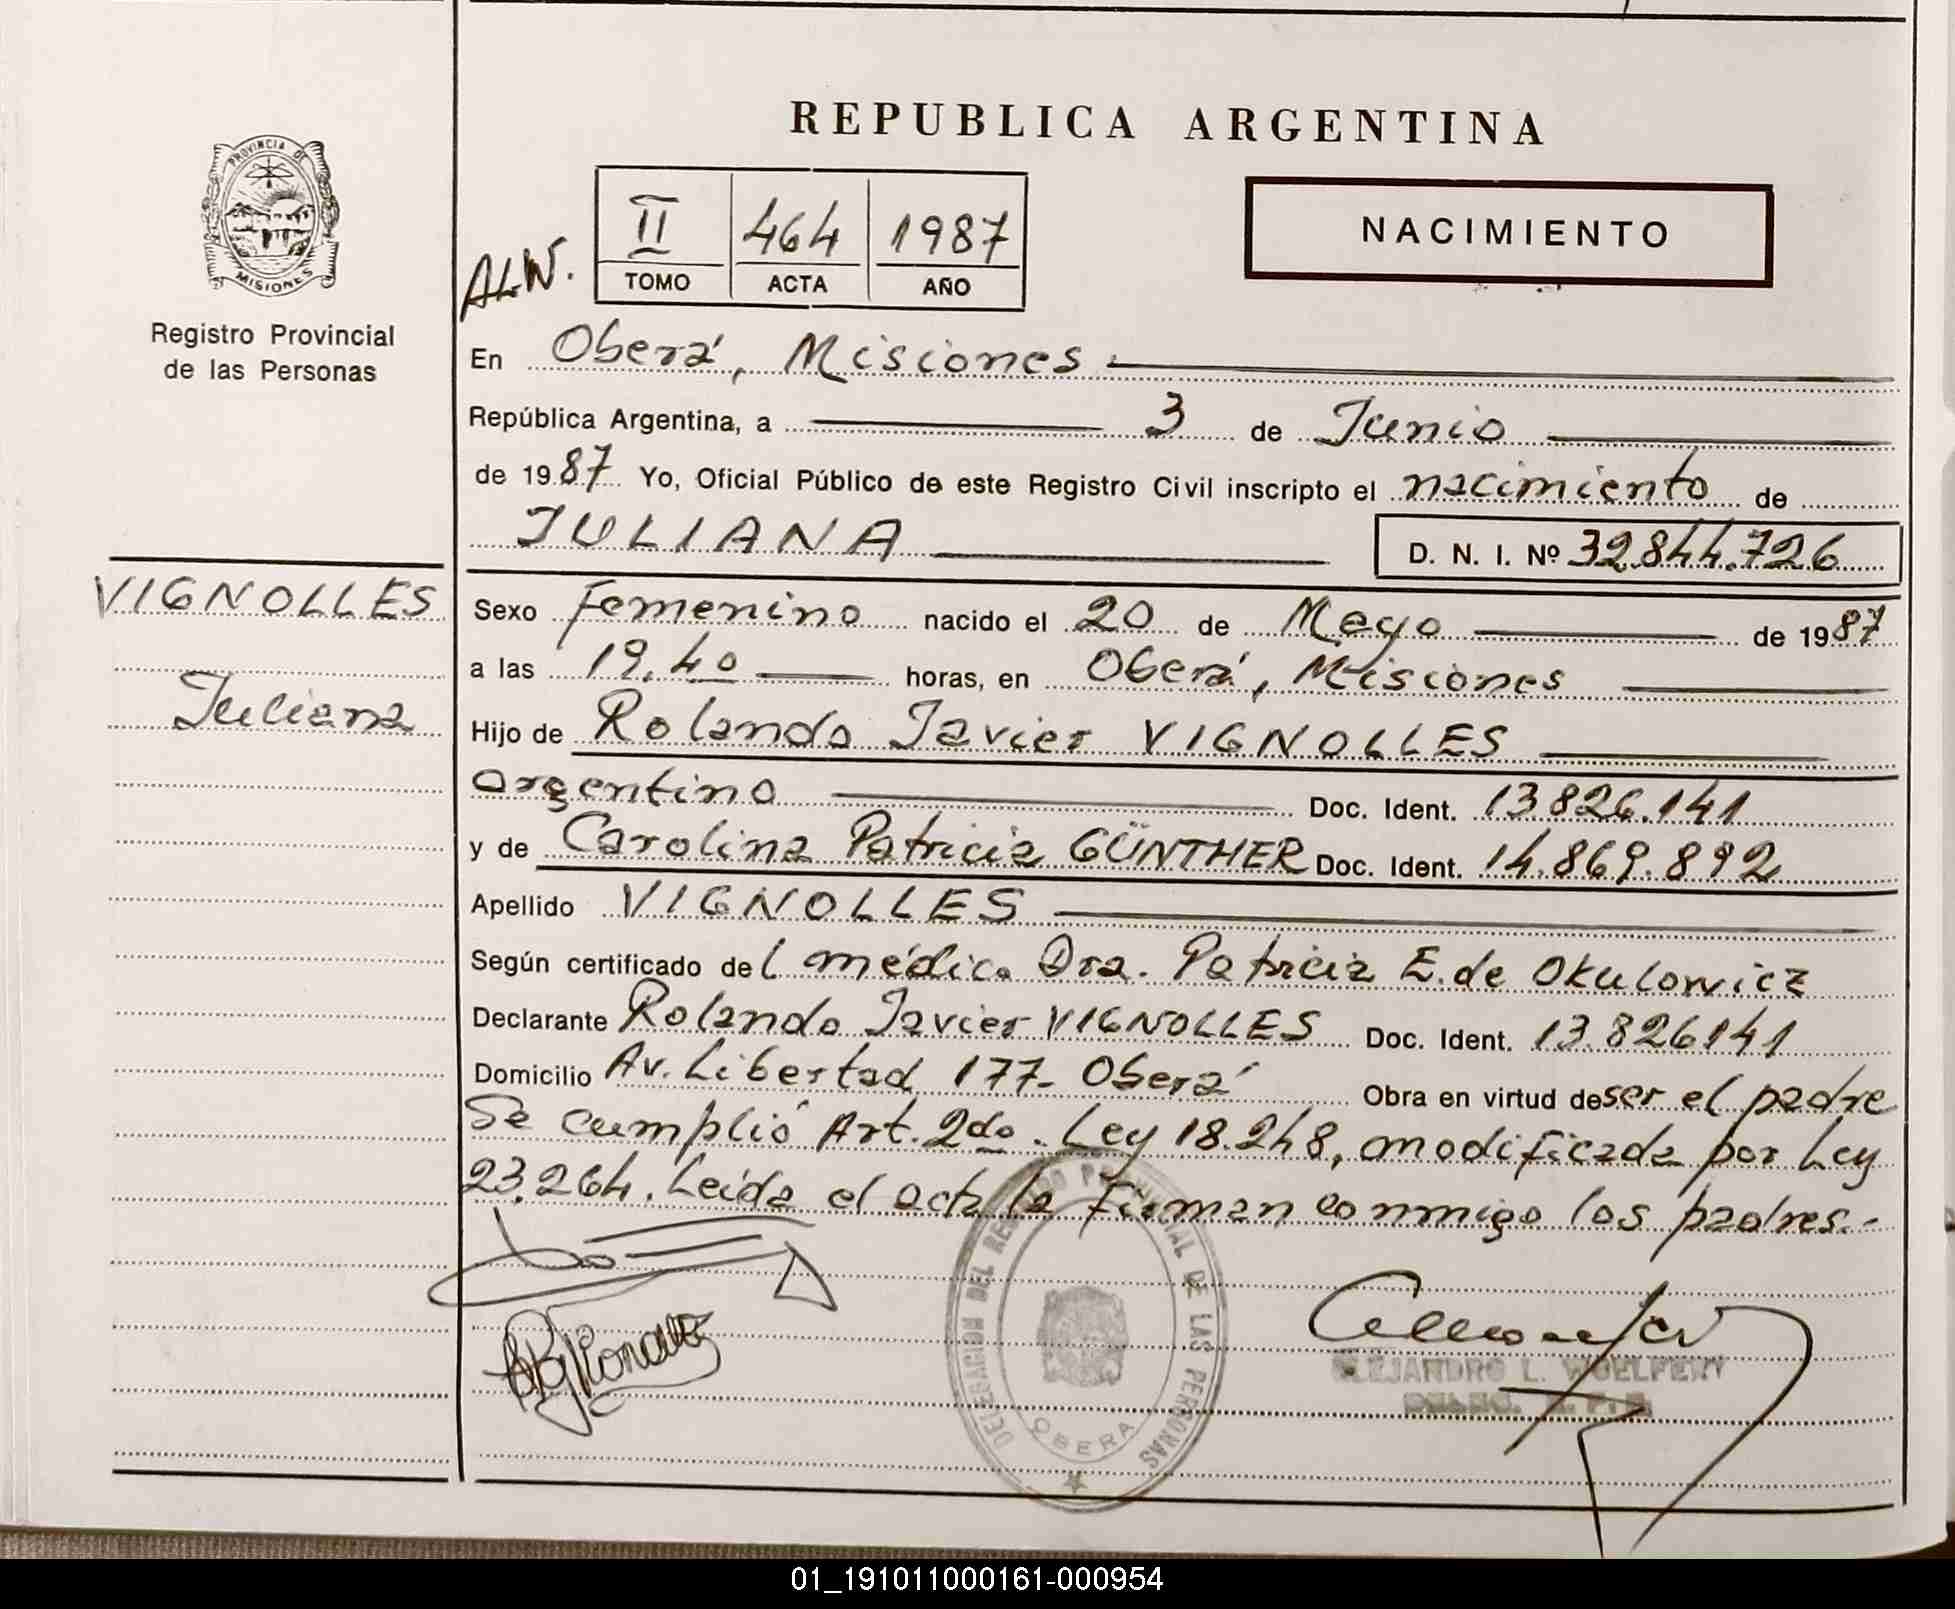 REPUBLICA ARGENTINA
PROVINCIA DE
MISIONES
Registro Provincial
de las Personas
II 464 1987
TOMO ACTA AÑO
NACIMIENTO
ALW.
En Oberá, Misiones
República Argentina, a 3 de Junio
de 1987 Yo, Oficial Público de este Registro Civil inscripto el nacimiento de
JULIANA D. N. I. Nº 32.844.726
VIGNOLLES
Juliana
Sexo Femenino nacido el 20 de Mayo de 1987
a las 19.40 horas, en Oberá, Misiones
Hijo de Rolando Javier VIGNOLLES
argentino Doc. Ident. 13.826.141
y de Carolina Patricia GÜNTHER Doc. Ident. 14.869.892
Apellido VIGNOLLES
Según certificado del médica Dra. Patricia E. de Okulowicz
Declarante Rolando Javier VIGNOLLES Doc. Ident. 13.826141
Domicilio Av. Libertad 177- Oberá Obra en virtud de ser el padre
Se cumplió Art. 2do. Ley 18.248, modificada por Ley
23.264. Leída el acta la firman conmigo los padres.-
DELEGACION DEL REGISTRO PROVINCIAL DE LAS PERSONAS
OBERA
ALEJANDRO L.
01_191011000161-000954